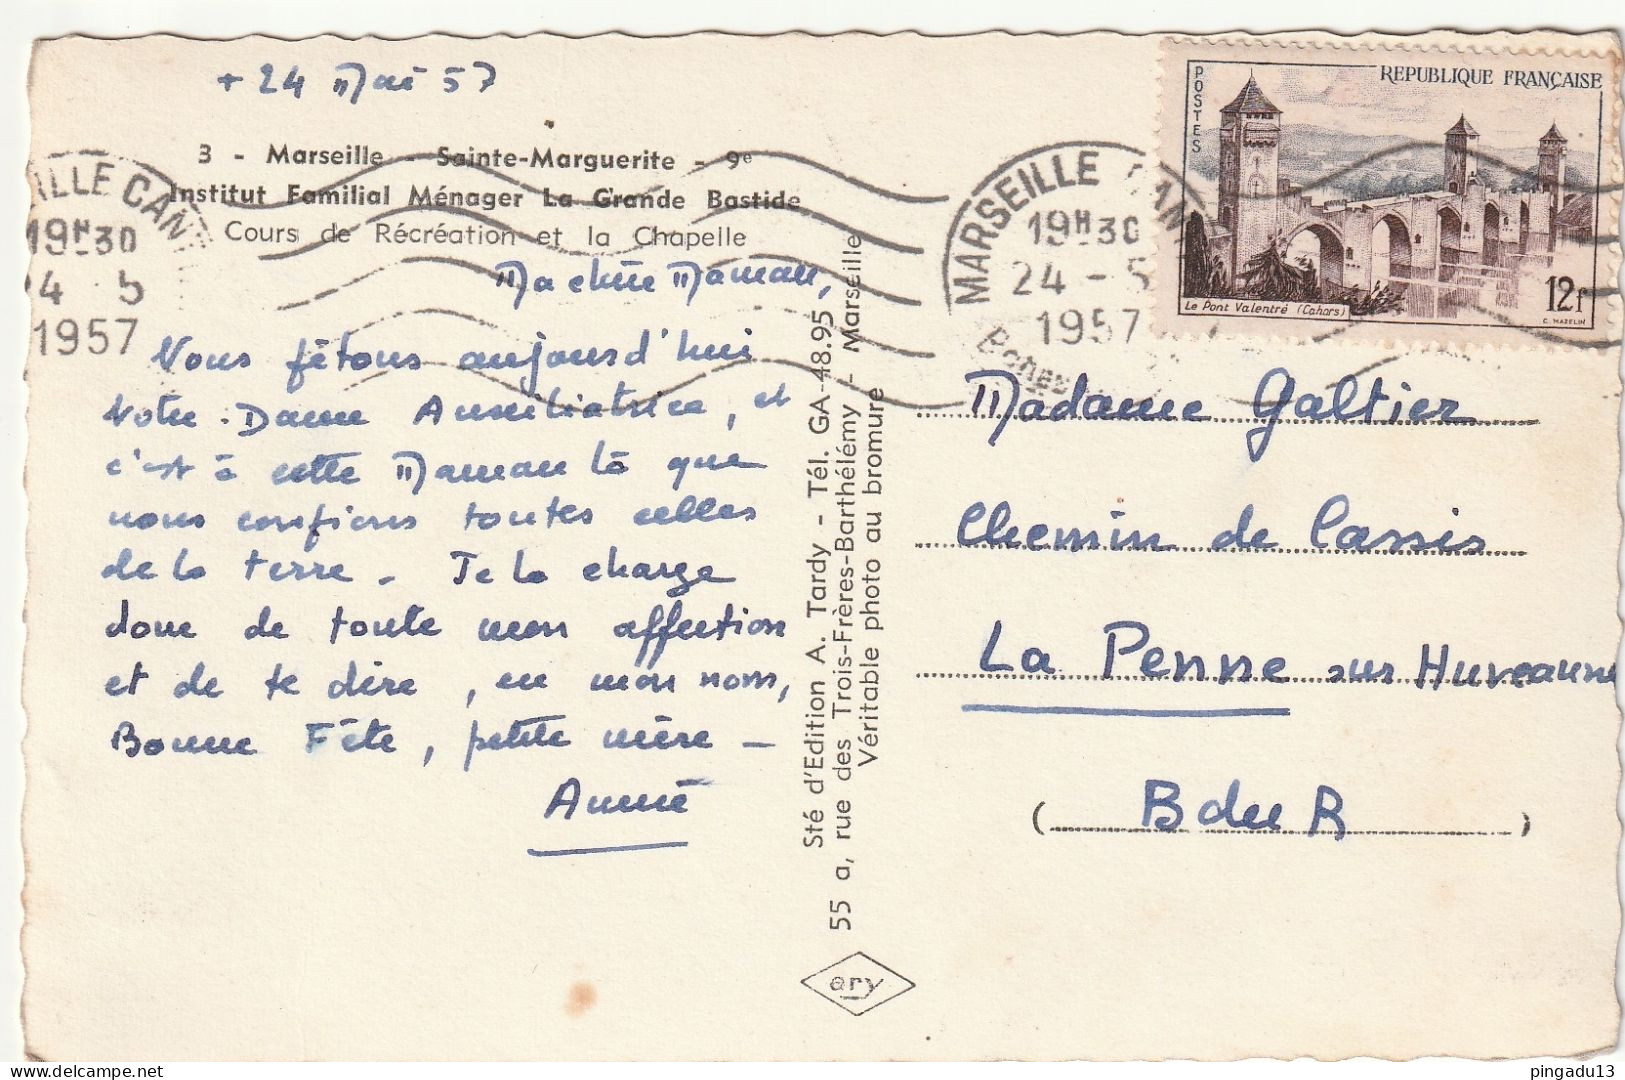 + 24 Mai 57
3 - Marseille - Sainte-Marguerite - 9e
Institut Familial Ménager La Grande Bastide
Cours de Récréation et la Chapelle
Ma chère Maman,
Nous fêtons aujourd'hui
Notre-Dame Auxiliatrice, et
c'est à cette Maman là que
nous confions toutes celles
de la terre. Je la charge
donc de toute mon affection
et de te dire, en mon nom,
Bonne Fête, petite mère -
Sté d'Edition A. Tardy - Tél. GA-48.95
55 a, rue des Trois-Frères-Barthélémy - Marseille
Véritable photo au bromure
ary
MARSEILLE
19H30
24 - 5
1957
ILLE CAN
19H30
24 5
1957
POSTES
REPUBLIQUE FRANÇAISE
Le Pont Valentré (Cahors)
12f
C. MAZELIN
Madame Galtier
Chemin de Cassis
La Penne sur Huveaune
(B du R)
pingadu13